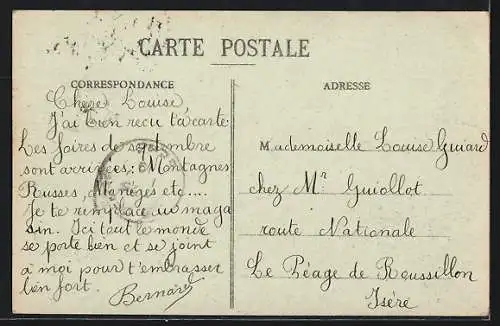 CARTE POSTALE
CORRESPONDANCE
Chère Louise,
J'ai bien reçu ta carte
Les foires de septembre
sont arrivées : Montagnes
Russes, Manèges etc....
Je te remplace au maga
sin. Ici tout le monde
se porte bien et se joint
à moi pour t'embrasser
bien fort.
Bernard
ADRESSE
Mademoiselle Louise Guiard
chez Mr Guiollot
route Nationale
Le Péage de Roussillon
Isère